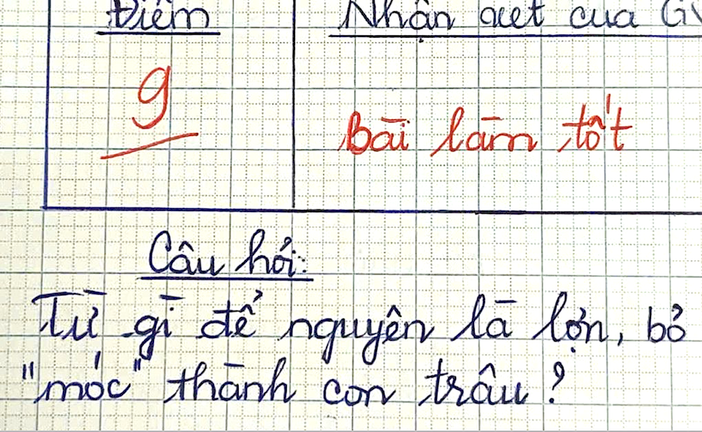 Điểm Nhận xét của GV
9 Bài làm tốt
Câu hỏi:
Từ gì để nguyên là lợn, bỏ
"móc" thành con trâu?